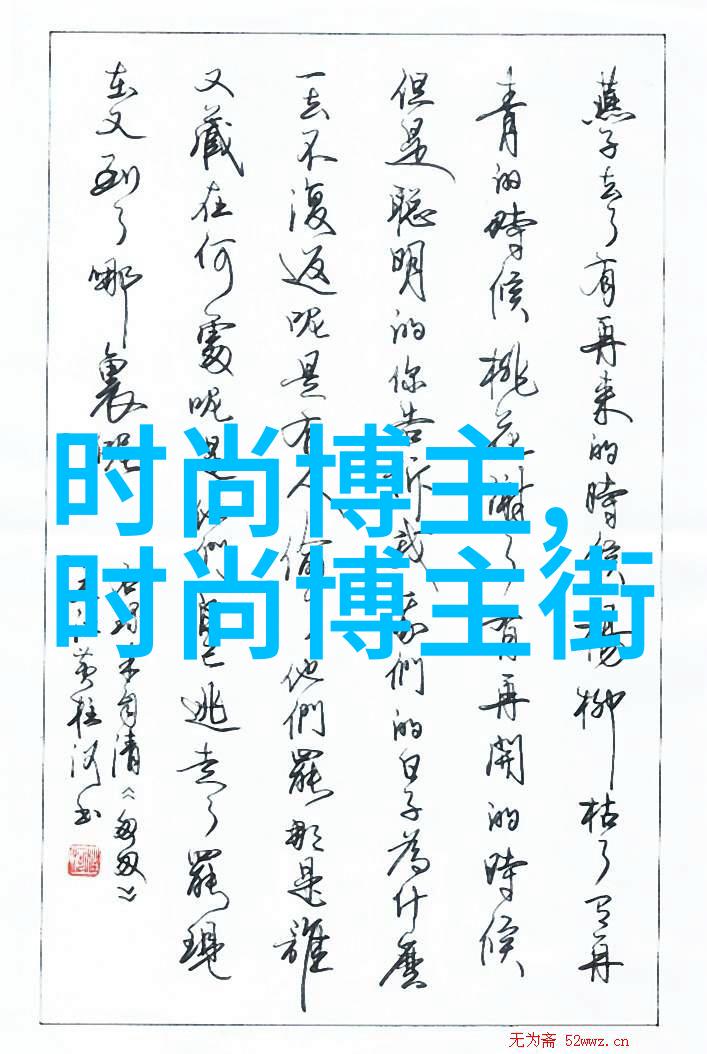 燕子去了有再来的時候楊柳枯了有再
青的時候桃花謝了有再開的時候
但是聪明的你告訴我我們的日子為什麼
一去不復返呢是有人偷了他們罷那是誰
又藏在何處呢是他們自己逃走了罷現
在又到了哪裏呢
朱自清《匆匆》
黄桂河书
时尚博主,
时尚博主街
无为斋 52wwz.cn